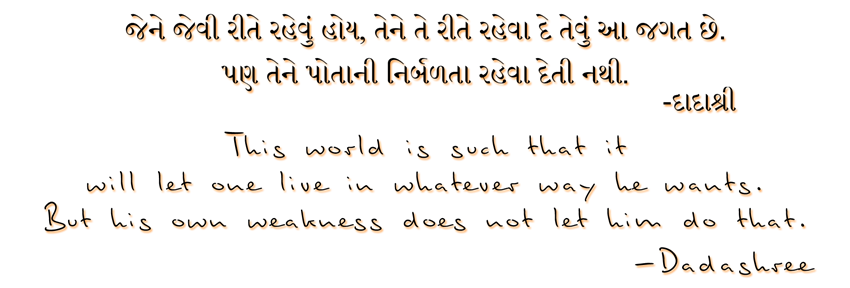 જેને જેવી રીતે રહેવું હોય, તેને તે રીતે રહેવા દે તેવું આ જગત છે.
પણ તેને પોતાની નિર્બળતા રહેવા દેતી નથી.
-દાદાશ્રી
This world is such that it
will let one live in whatever way he wants.
But his own weakness does not let him do that.
-Dadashree